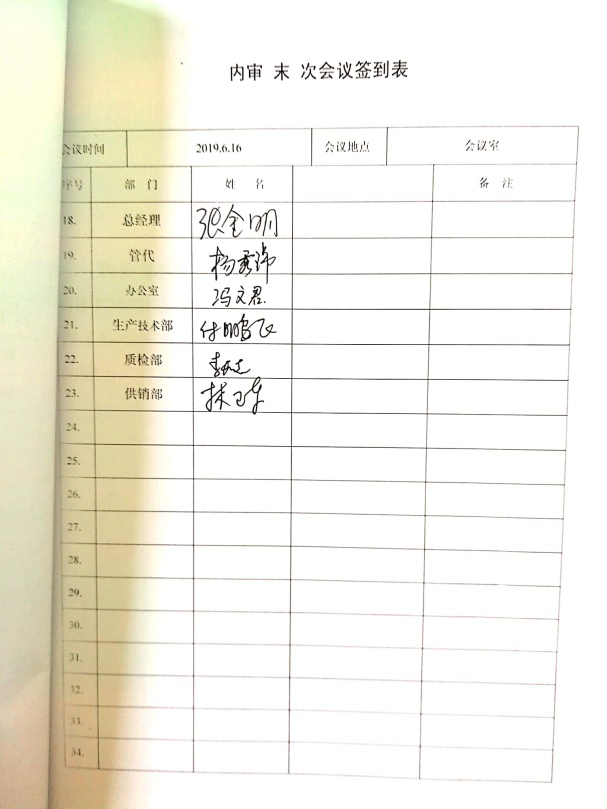 内审 末 次会议签到表
会议时间 2019.6.16 会议地点 会议室
序号 部 门 姓 名 备 注
18. 总经理 张金明
19. 管代 杨秀
20. 办公室 冯文君
21. 生产技术部 付鹏飞
22. 质检部 李
23. 供销部 林卫东
24.
25.
26.
27.
28.
29.
30.
31.
32.
33.
34.